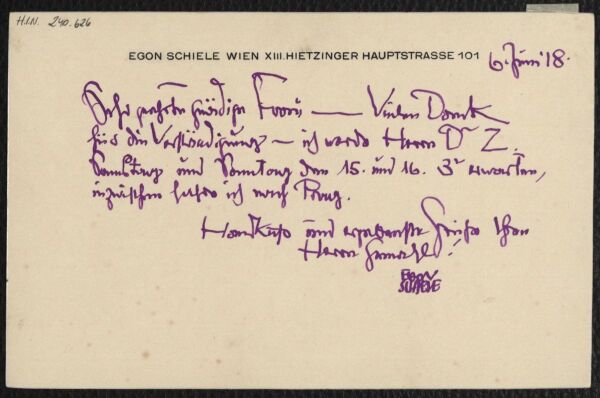 H.I.N. 240.626
EGON SCHIELE WIEN XIII. HIETZINGER HAUPTSTRASSE 101
6. Juni 18.
Sehr geehrte gnädige Frau — Vielen Dank
für die Verständigung – ich werde Herrn Dr Z.
Samstag und Sonntag den 15. und 16. erwarten,
inzwischen fahre ich nach Prag.
Handkuss und ergebenste Grüsse Ihrem
Herrn Gemahl!
EGON
SCHIELE